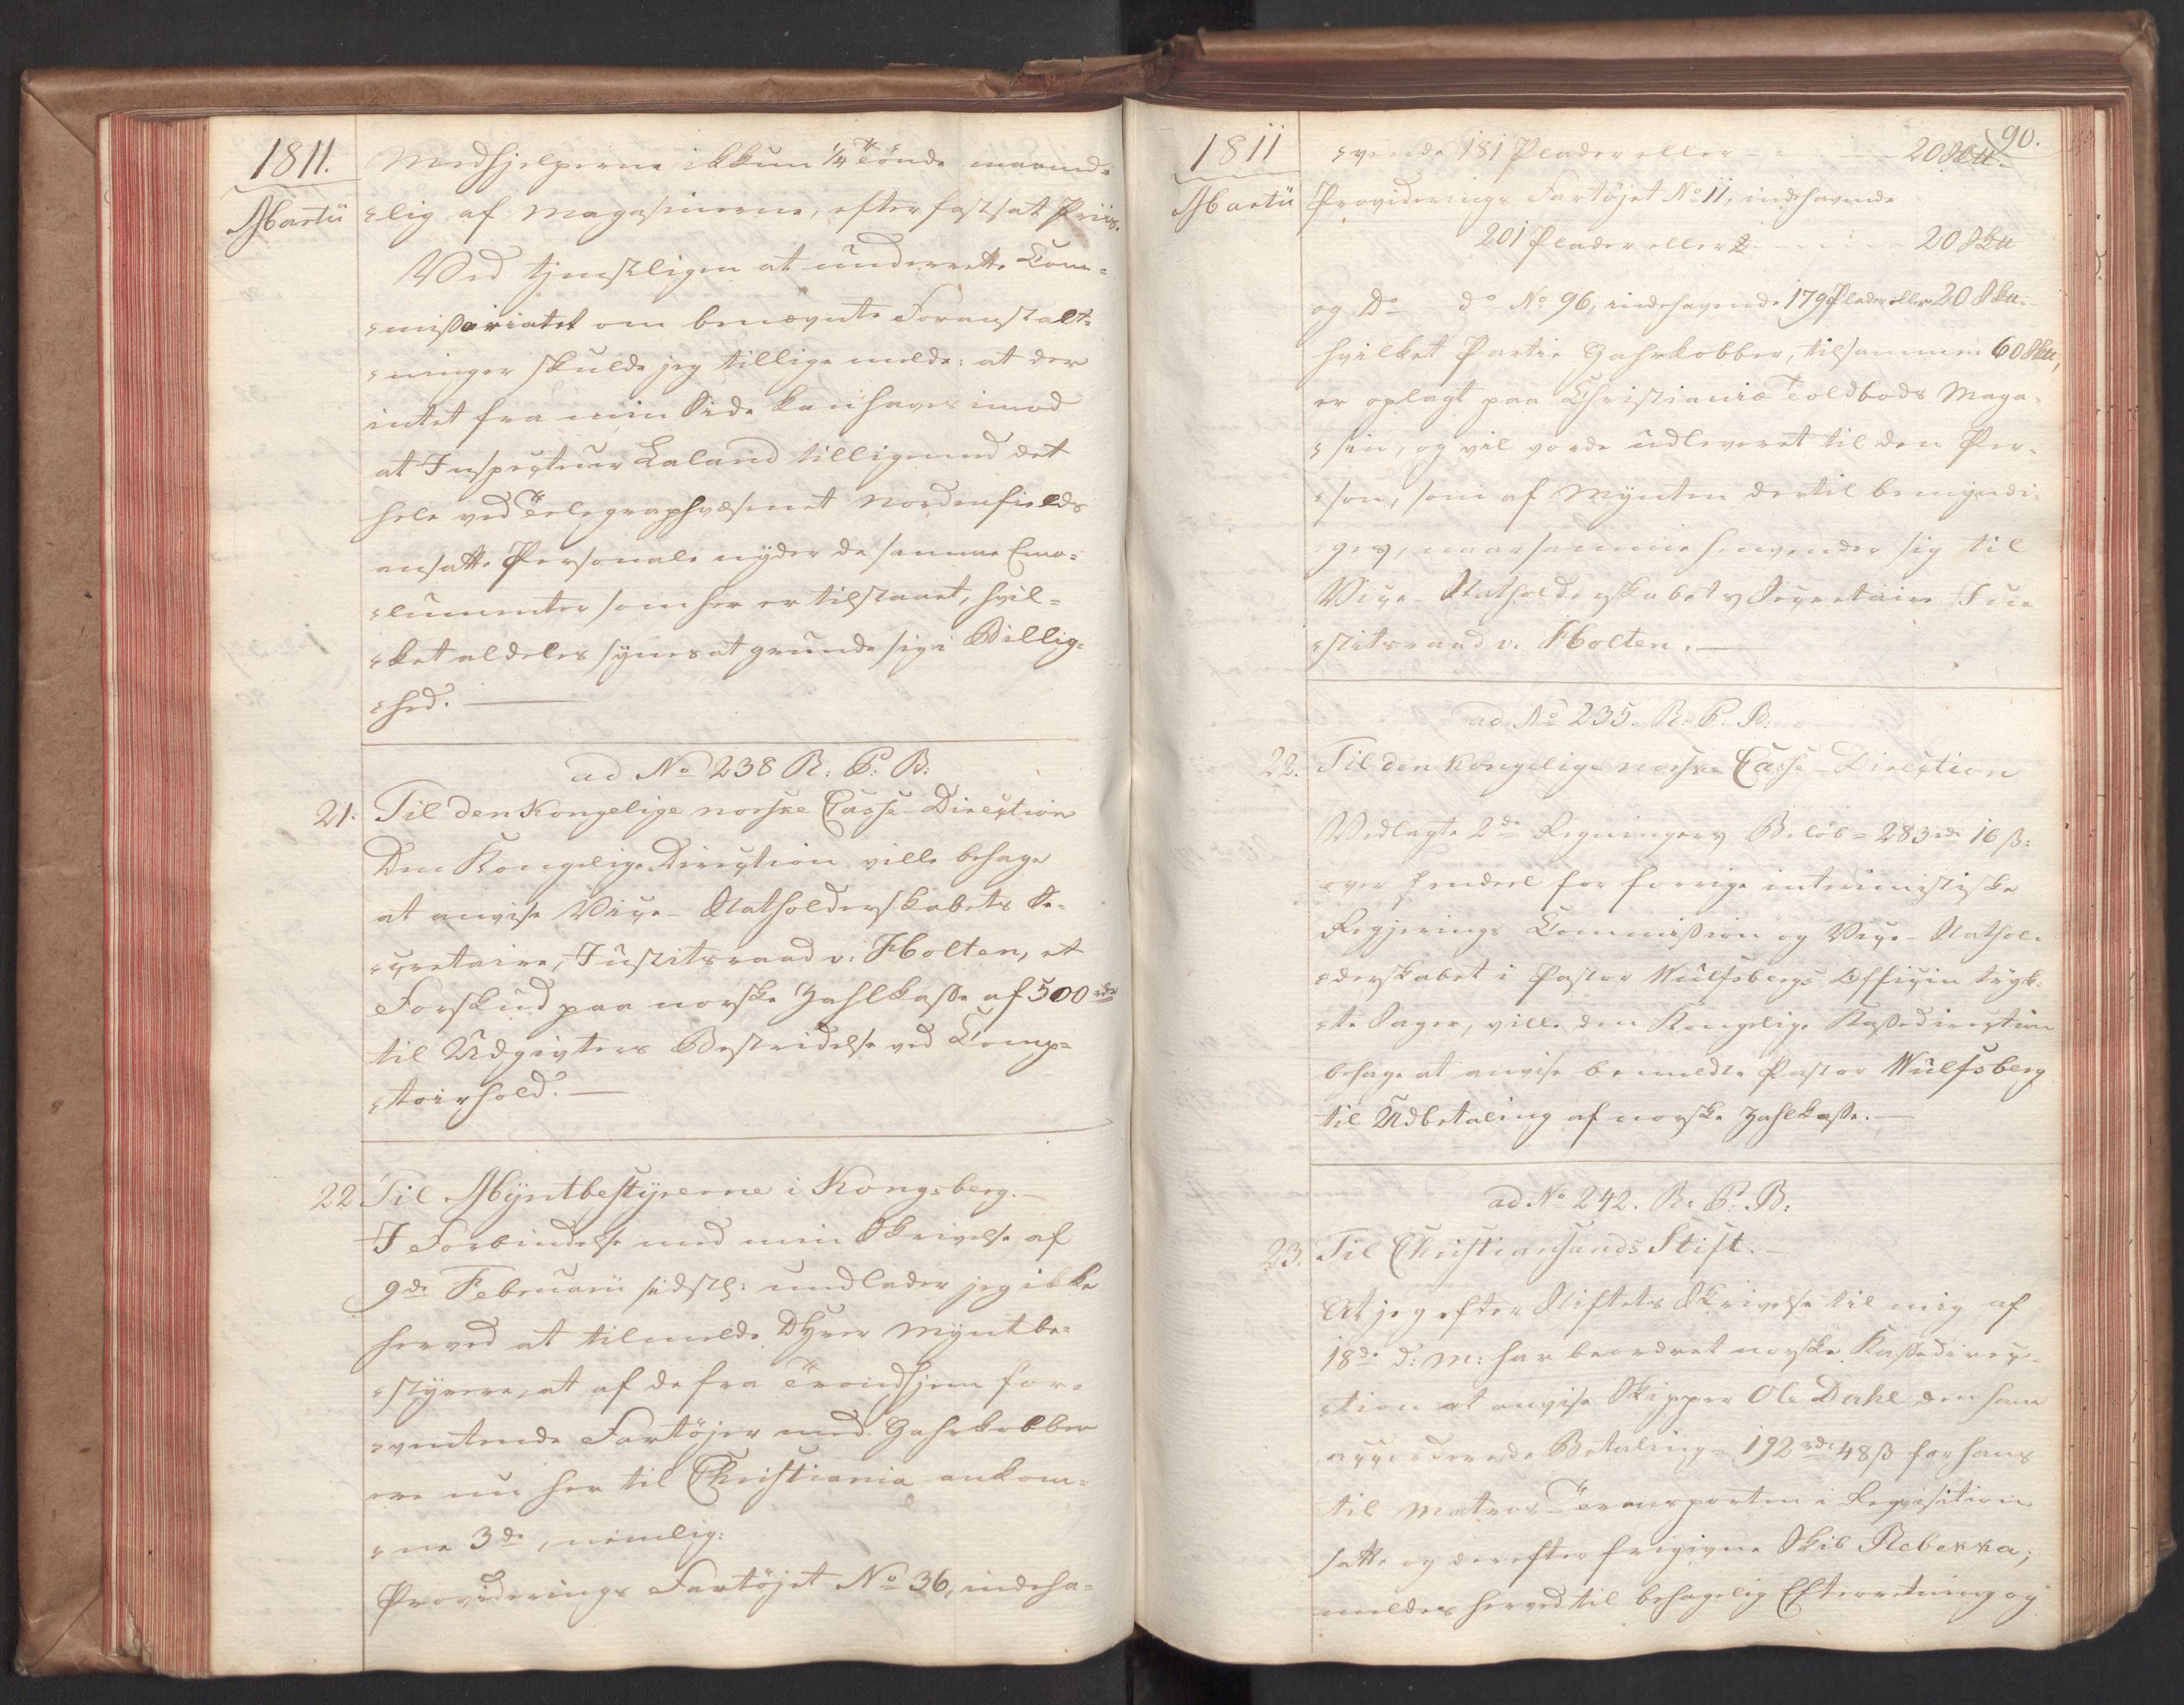 1811.
Martii
Medhjelperne ikkun 1/4 Tønde maaned-
-lig af Magasinerne, efter fastsat Priis.
Ved tjenstligen at underrette Com-
-missariatet om benævnte Foranstalt-
-ninger skulde jeg tillige melde: at der
intet fra min Side kan haves imod
at Inspecteur Laland tilligemed det
hele ved Telegraphvæsenet Nordenfields
ansatte Personale nyder de samme Emo-
-lumenter som her er tilstaaet, hvil-
-ket aldeles synes at grunde sig i Billig-
-hed.
ad No 238 R: P: B:
21. Til den Kongelige norske Casse-Direction
Den Kongelige Direction ville behage
at anvise Vice-Statholderskabets Se-
-cretaire, Justitsraad v. Holten, et
Forskud paa norske Zahlkasse af 500 rdr
til Udgivters Bestridelse ved Comp-
-toirhold.
22. Til Myntbestyrerne i Kongsberg.
I Forbindelse med min Skrivelse af
9de Februarii sidstl: undlader jeg ikke
herved at tilmelde DHrer Myntbe-
-styrere, at af de fra Trondhjem for-
-ventende Fartøjer med Gahrkobber
ere nu her til Christiania ankom-
-ne 3de, nemlig:
Providerings Fartøjet No 36, indeha-
1811
Martii
90.
-vende 181 Plader eller - - - 20 Sktt.
Providerings Fartøjet No 11, indehavende
201 Plader eller - - - 20 Sktt
og Do do No 96, indehavende 179 Plader eller 20 Sktt.
hvilket Partie Gahrkobber, tilsammen 60 Sktt,
er oplagt paa Christianiæ Toldbods Maga-
-sin, og vil vorde udleveret til den Per-
-son, som af Mynten dertil bemyndi-
-ges, naar samme henvender sig til
Vice-Statholderskabets Secretaire Ju-
-stitsraad v. Holten.
ad No 235. R: P: B:
22. Til den Kongelige norske Casse-Direction
Vedlagte 2de Regningers Beløb = 283 rdr 16 ß:
over Endeel for forrige interimistiske
Regjerings Commission og Vice-Stathol-
-derskabet i Pastor Wulfsbergs Officin tryk-
-te Sager, ville den Kongelige Kassedirection
behage at anvise bemeldte Pastor Wulfsberg
til Udbetaling af norske Zahlkasse.
ad No 242. R: P: B:
23. Til Christiansands Stift.
At jeg efter Stiftets Skrivelse til mig af
18de d: M: har beordret norske Kassedirec-
-tion at anvise Skipper Ole Dahl den ham
accorderede Betaling = 192 rdr 48 ß for hans
til Matros-Transporten i Reqvisition
satte og derefter frigivne Skib Rebekka;
meldes herved til behagelig Efterretning og